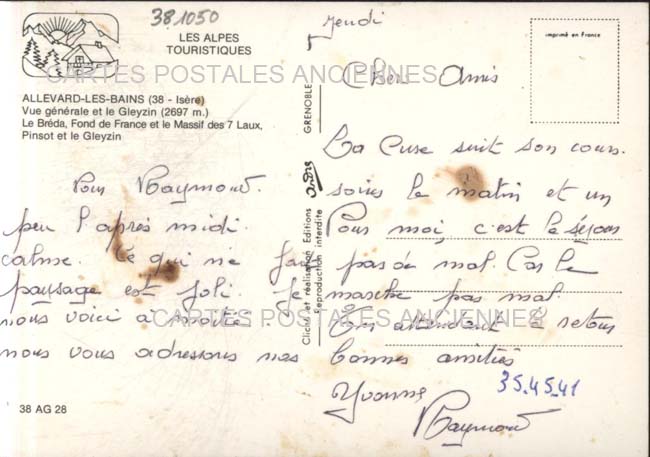 38.1050
LES ALPES
TOURISTIQUES
CARTES POSTALES ANCIENNES
ALLEVARD-LES-BAINS (38 - Isère)
Vue générale et le Gleyzin (2697 m.)
Le Bréda, Fond de France et le Massif des 7 Laux,
Pinsot et le Gleyzin
Jeudi
imprimé en France
Chers Amis
La Cure suit son cours.
soins le matin et un
Pour Raymond.
peu l'après midi
Pour moi, c'est le séjour
calme. Ce qui me fait
pas de mal. Car le
paysage est joli. Je
marche pas mal.
nous voici à moitié.
En attendant le retour
nous vous adressons nos
bonnes amitiés
Yvonne
Raymond
35.45.41
CARTES POSTALES ANCIENNES
GRENOBLE
Cliché et réalisation Editions
Reproduction interdite
38 AG 28